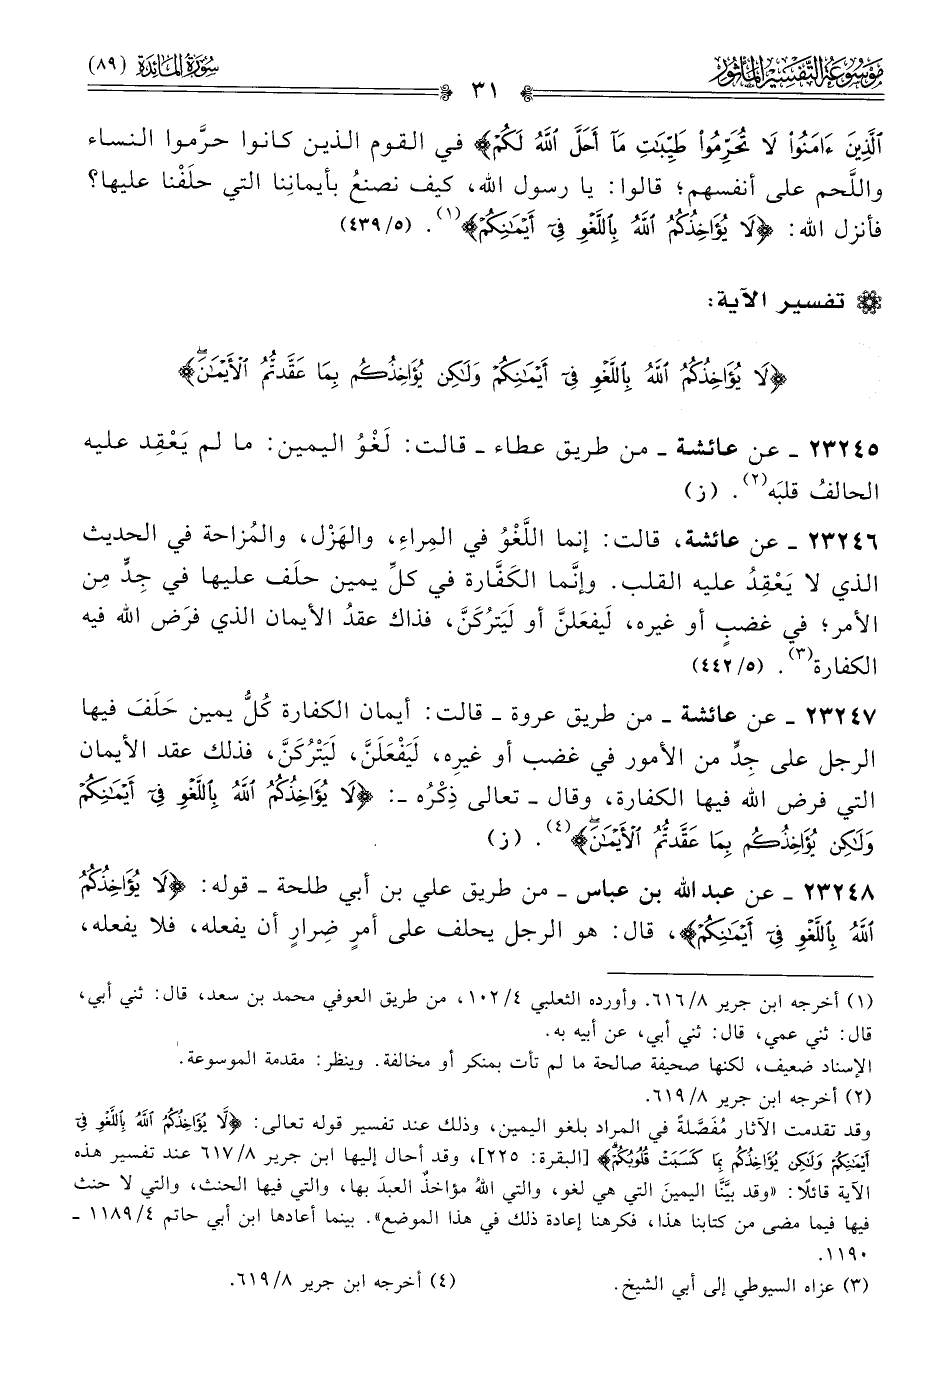 مَوْسُوعَةُ التَّفْسِيرِ المَأْثُورِ
٣١
سُورَةُ المَائِدَةِ (٨٩)
ٱلَّذِينَ ءَامَنُوا۟ لَا تُحَرِّمُوا۟ طَيِّبَٰتِ مَآ أَحَلَّ ٱللَّهُ لَكُمْ﴾ في القوم الذين كانوا حرَّموا النساء
واللَّحم على أنفسهم؛ قالوا: يا رسول الله، كيف نصنعُ بأيماننا التي حلَفْنا عليها؟
فأنزل الله: ﴿لَا يُؤَاخِذُكُمُ ٱللَّهُ بِٱللَّغْوِ فِىٓ أَيْمَٰنِكُمْ﴾(١). (٤٣٩/٥)
تفسير الآية:
﴿لَا يُؤَاخِذُكُمُ ٱللَّهُ بِٱللَّغْوِ فِىٓ أَيْمَٰنِكُمْ وَلَٰكِن يُؤَاخِذُكُم بِمَا عَقَّدتُّمُ ٱلْأَيْمَٰنَۖ﴾
٢٣٢٤٥ ـ عن عائشة ـ من طريق عطاء ـ قالت: لَغْوُ اليمين: ما لم يَعْقِد عليه
الحالفُ قلبَه(٢). (ز)
٢٣٢٤٦ ـ عن عائشة، قالت: إنما اللَّغْوُ في المِراءِ، والهَزْل، والمُزاحة في الحديث
الذي لا يَعْقِدُ عليه القلب. وإنَّما الكَفَّارة في كلِّ يمين حلَف عليها في جِدٍّ مِن
الأمر؛ في غضبٍ أو غيره، لَيفعَلنَّ أو لَيَتركَنَّ، فذاك عقدُ الأيمان الذي فرَض الله فيه
الكفارة(٣). (٤٤٢/٥)
٢٣٢٤٧ ـ عن عائشة ـ من طريق عروة ـ قالت: أيمان الكفارة كُلُّ يمين حَلَفَ فيها
الرجل على جِدٍّ من الأمور في غضب أو غيرِه، لَيَفْعَلَنَّ، لَيَتْرُكَنَّ، فذلك عقد الأيمان
التي فرض الله فيها الكفارة، وقال ـ تعالى ذِكْرُه ـ: ﴿لَا يُؤَاخِذُكُمُ ٱللَّهُ بِٱللَّغْوِ فِىٓ أَيْمَٰنِكُمْ
وَلَٰكِن يُؤَاخِذُكُم بِمَا عَقَّدتُّمُ ٱلْأَيْمَٰنَۖ﴾(٤). (ز)
٢٣٢٤٨ ـ عن عبد الله بن عباس ـ من طريق علي بن أبي طلحة ـ قوله: ﴿لَا يُؤَاخِذُكُمُ
ٱللَّهُ بِٱللَّغْوِ فِىٓ أَيْمَٰنِكُمْ﴾، قال: هو الرجل يحلف على أمرِ ضِرارٍ أن يفعله، فلا يفعله،
(١) أخرجه ابن جرير ٨/ ٦١٦. وأورده الثعلبي ٤/ ١٠٢، من طريق العوفي محمد بن سعد، قال: ثني أبي،
قال: ثني عمي، قال: ثني أبي، عن أبيه به.
الإسناد ضعيف، لكنها صحيفة صالحة ما لم تأت بمنكر أو مخالفة. وينظر: مقدمة الموسوعة.
(٢) أخرجه ابن جرير ٨/ ٦١٩.
وقد تقدمت الآثار مُفَصَّلةً في المراد بلغو اليمين، وذلك عند تفسير قوله تعالى: ﴿لَّا يُؤَاخِذُكُمُ ٱللَّهُ بِٱللَّغْوِ فِىٓ
أَيْمَٰنِكُمْ وَلَٰكِن يُؤَاخِذُكُم بِمَا كَسَبَتْ قُلُوبُكُمْۗ﴾ [البقرة: ٢٢٥]، وقد أحال إليها ابن جرير ٨/ ٦١٧ عند تفسير هذه
الآية قائلًا: «وقد بيَّنَّا اليمينَ التي هي لغو، والتي اللهُ مؤاخذٌ العبدَ بها، والتي فيها الحنث، والتي لا حنث
فيها فيما مضى من كتابنا هذا، فكرهنا إعادة ذلك في هذا الموضع». بينما أعادها ابن أبي حاتم ٤/ ١١٨٩ ـ
١١٩٠.
(٣) عزاه السيوطي إلى أبي الشيخ. (٤) أخرجه ابن جرير ٨/ ٦١٩.